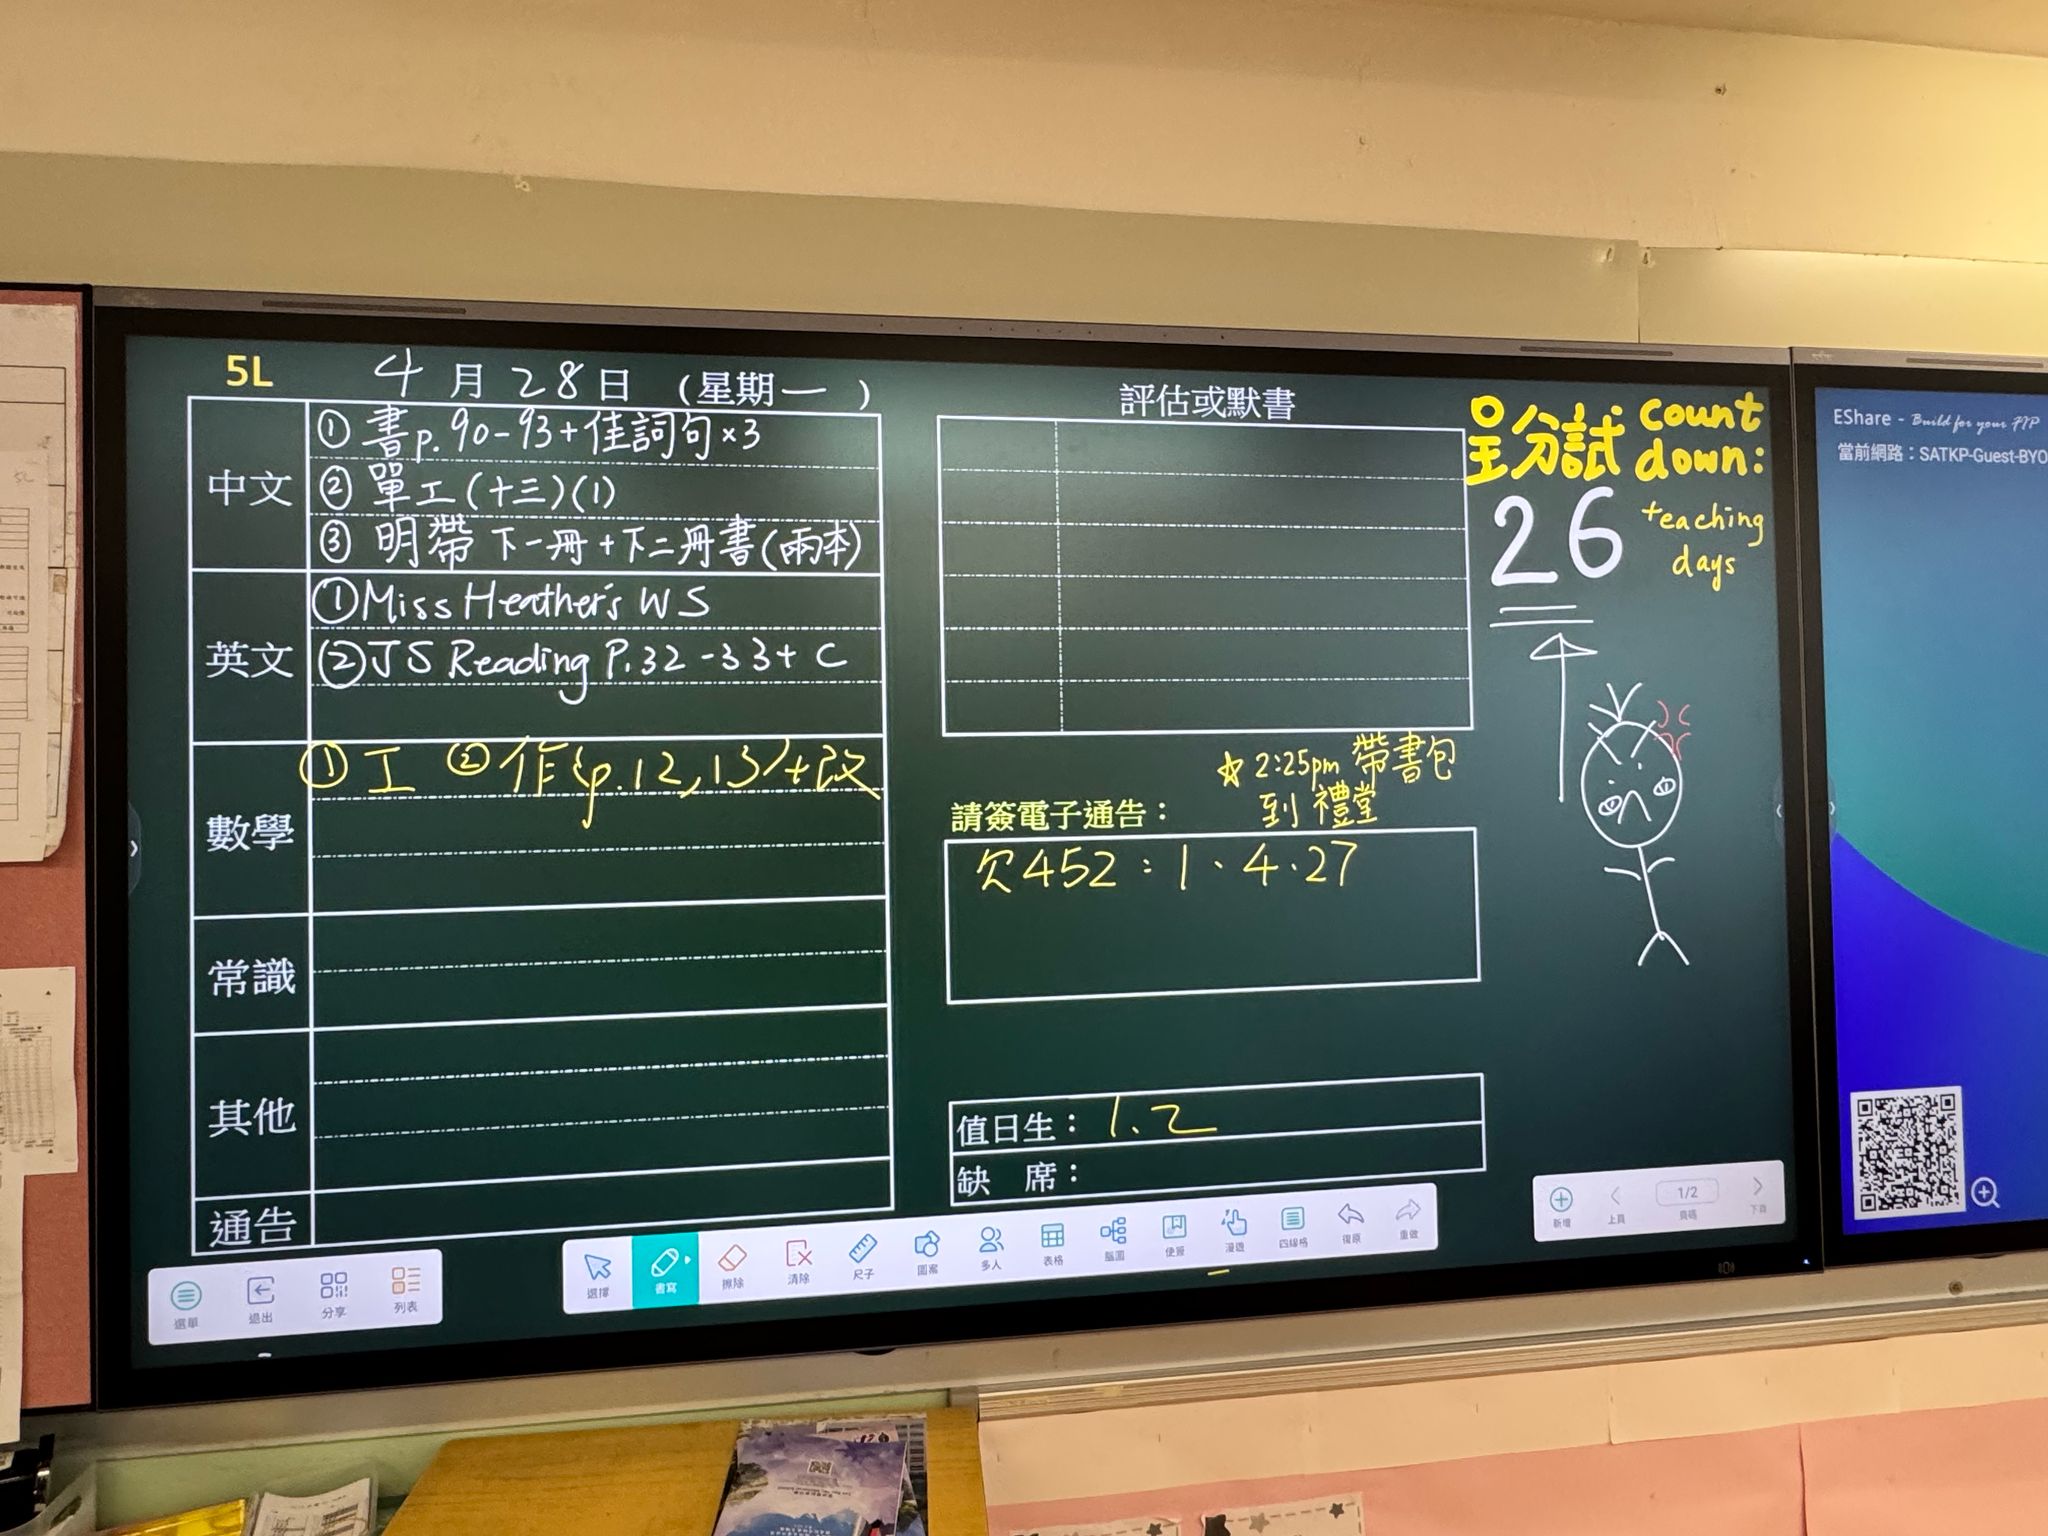 5L 4月28日 (星期一)
中文
① 書p.90-93+佳詞句×3
② 單工(十三)(1)
③ 明帶下一冊+下二冊書(兩本)
英文
①Miss Heather's WS
②JS Reading P.32-33+C
數學
① 工 ② 作(p.12,13)+改
常識
其他
通告
評估或默書
呈分試 count
down:
26 teaching
days
☆ 2:25pm 帶書包
到禮堂
請簽電子通告：
欠452：1、4、27
值日生：1、2
缺 席：
選單 退出 分享 列表
選擇 書寫 擦除 清除 尺子 圖案 多人 表格 腦圖 便簽 漫遊 四線格 復原 重做
新增 上頁 1/2 頁碼 下頁
EShare - Build for your IFP
當前網路：SATKP-Guest-BYO